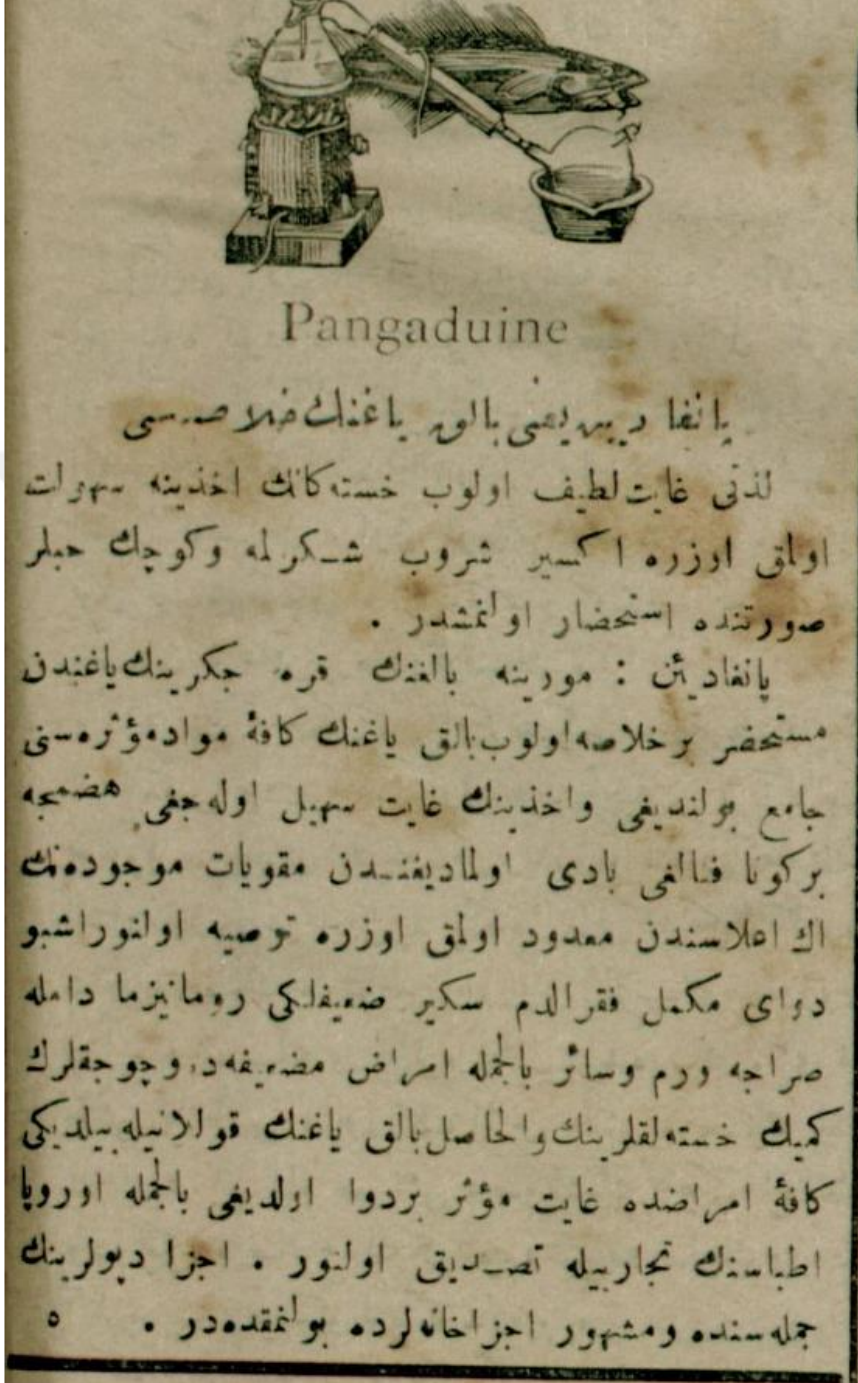 Pangaduine
پانغا ديين يعنى بالق ياغنك خلاصه سى
لذتى غايت لطيف اولوب خسته كانك اخذينه سهولت
اولمق اوزره اكسير شروب شكرلمه وكوچك حبلر
صورتنده استحضار اولنمشدر .
پانغاديئن : مورينه بالغنك قره جكرينك ياغندن
مستحضر بر خلاصه اولوب بالق ياغنك كافۀ مواد مؤثره سنى
جامع بولنديغى واخذينك غايت سهيل اوله جغى هضمجه
بركونا فنالغى بادى اولماديغندن مقويات موجوده نك
اك اعلاسندن معدود اولمق اوزره توصيه اولنور اشبو
دواى مكمل فقرالدم سكير ضعيفلكى روماتيزما دامله
صراجه ورم وسائر بالجمله امراض مضعيفه ده وچوجقلرك
كميك خسته لقلرينك والحاصل بالق ياغنك قوللانيله بيلديكى
كافۀ امراضده غايت مؤثر بردوا اولديغى بالجمله اوروپا
اطباسنك تجاربيله تصديق اولنور . اجزا ديپولرينك
جمله سنده ومشهور اجزاخانه لرده بولنمقده در . ٥